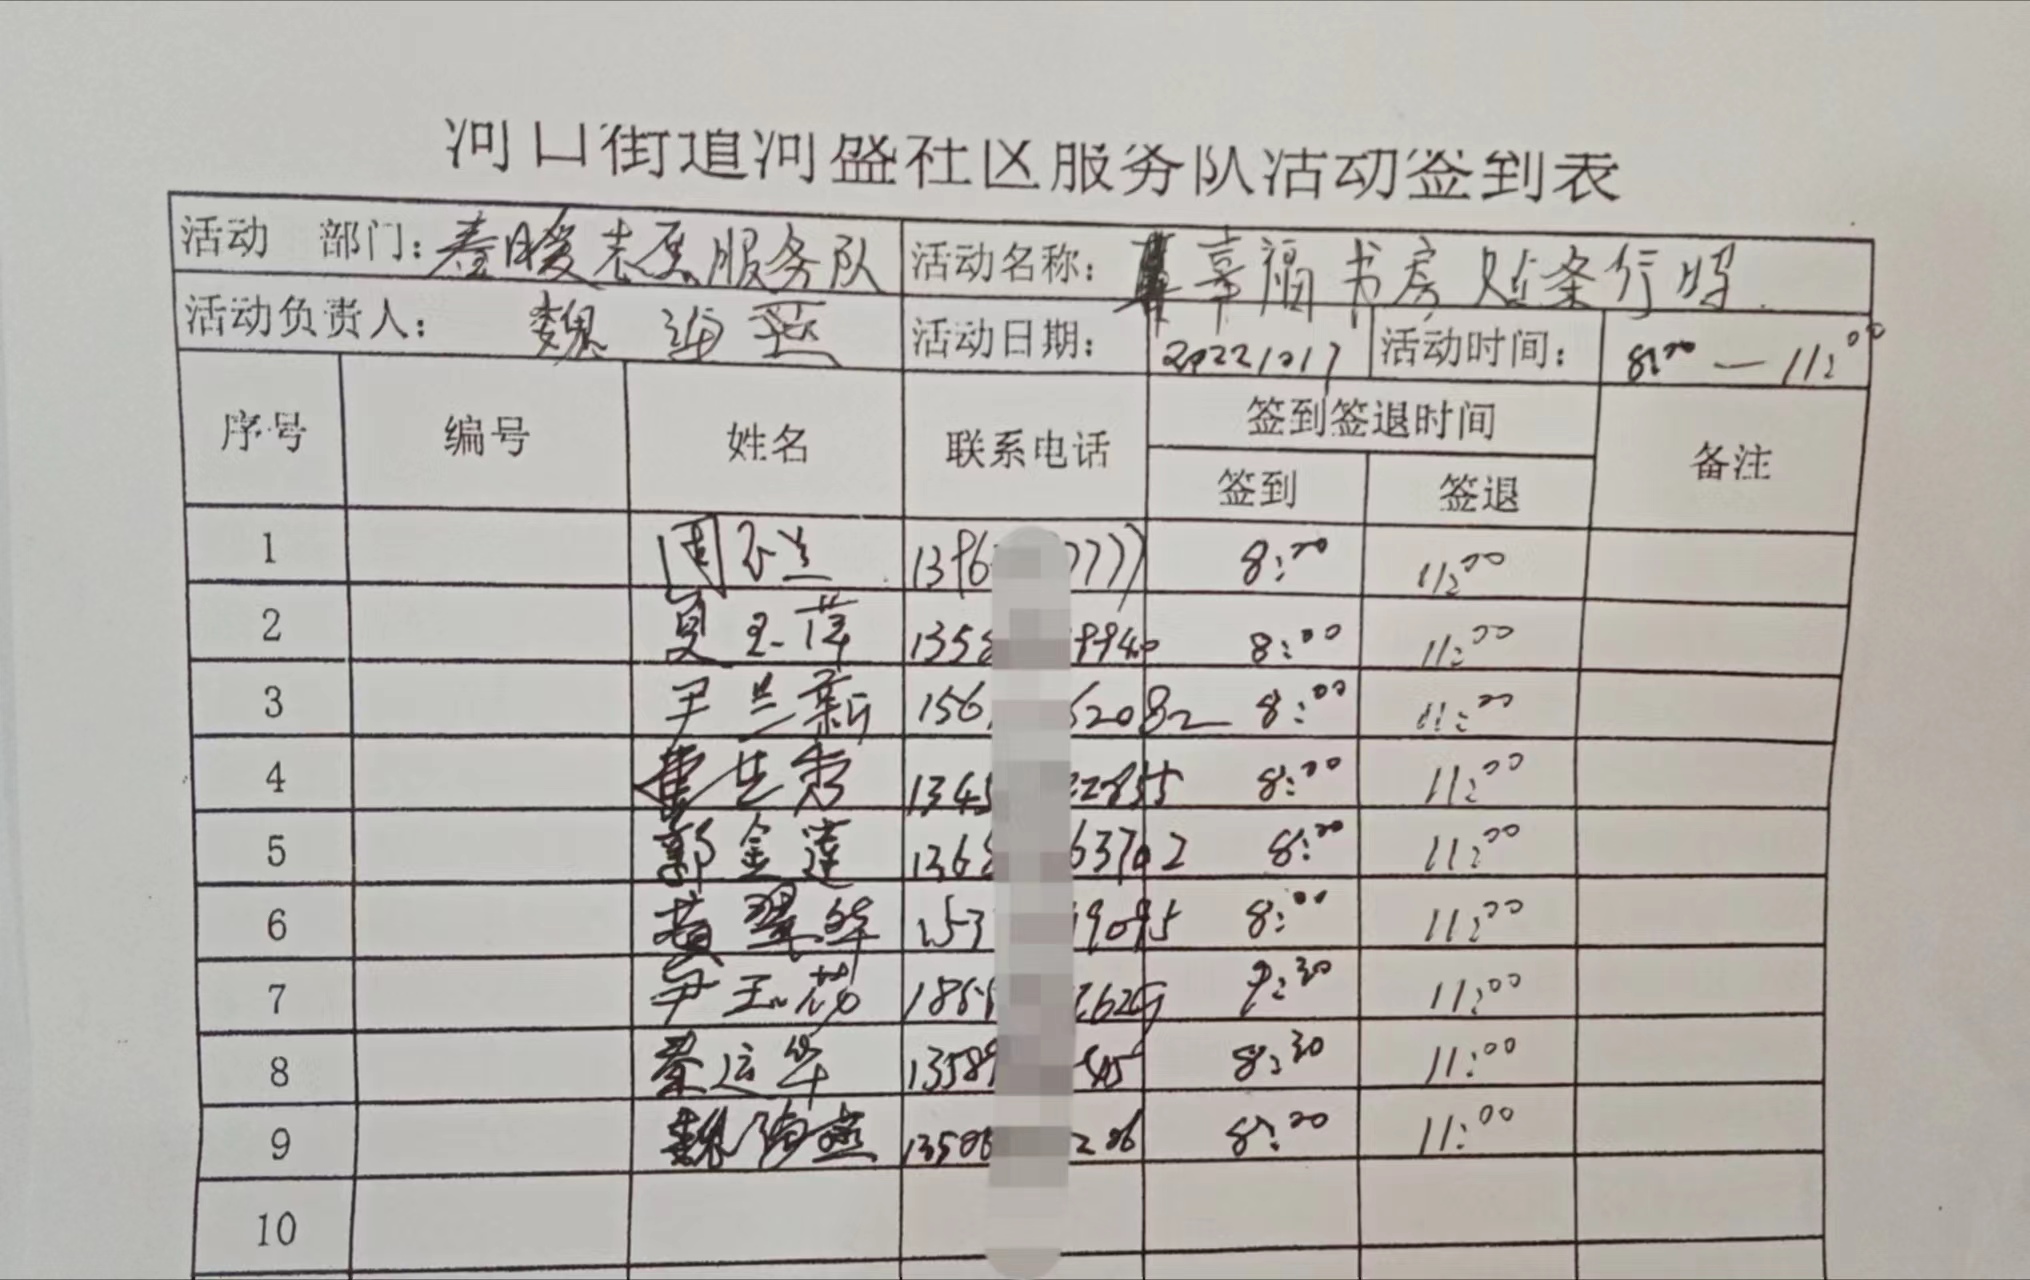 河口街道河盛社区服务队活动签到表
活动 部门：春暖志愿服务队 活动名称：幸福书房
活动负责人：魏海燕 活动日期：20221017 活动时间：8:00—11:00
序号 编号 姓名 联系电话 签到签退时间 备注
签到 签退
1 周玉兰 8:00 11:00
2 夏玉萍 1358 9940 8:00 11:00
3 尹兰新 156 62082 8:00 11:00
4 1345 22855 8:00 11:00
5 郭金莲 1368 63702 8:00 11:00
6 黄翠华 1537 19095 8:00 11:00
7 尹玉芬 11:00
8 秦运华 13589 45 8:30 11:00
9 魏海燕 13508 206 11:00
10